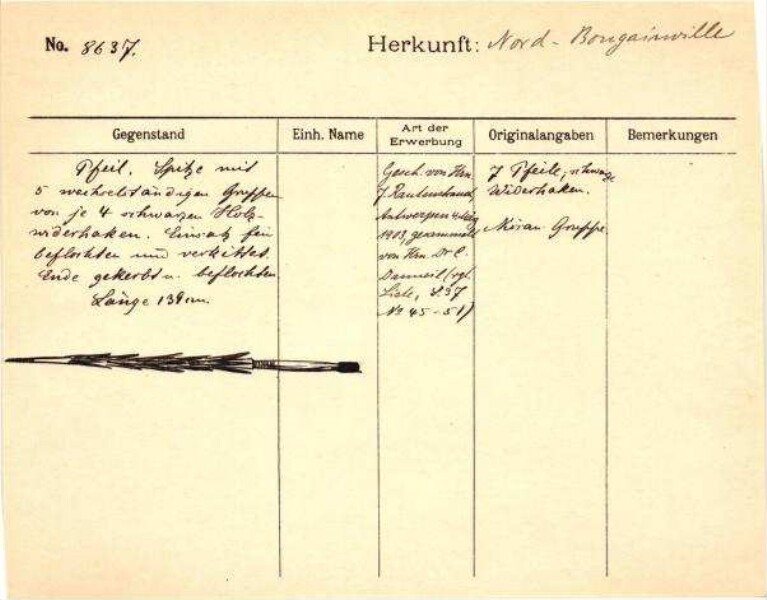 No. 8637.
Herkunft: Nord-Bougainville
Gegenstand
Einh. Name
Art der Erwerbung
Originalangaben
Bemerkungen
Pfeil. Spitze mit
5 wechselständigen Gruppen
von je 4 schwarzen Holz-
widerhaken. Einsatz fein
beflochten und verkittet.
Ende gekerbt u. beflochten.
Länge 139 cm.
Gesch. von Hrn.
J. Rautenstrauch,
Antwerpen
1913, gesammelt
von Hrn. Dr C.
(vgl.
Liste, S. 37
No 45-51)
7 Pfeile, schwarze
Widerhaken.
Gruppe.